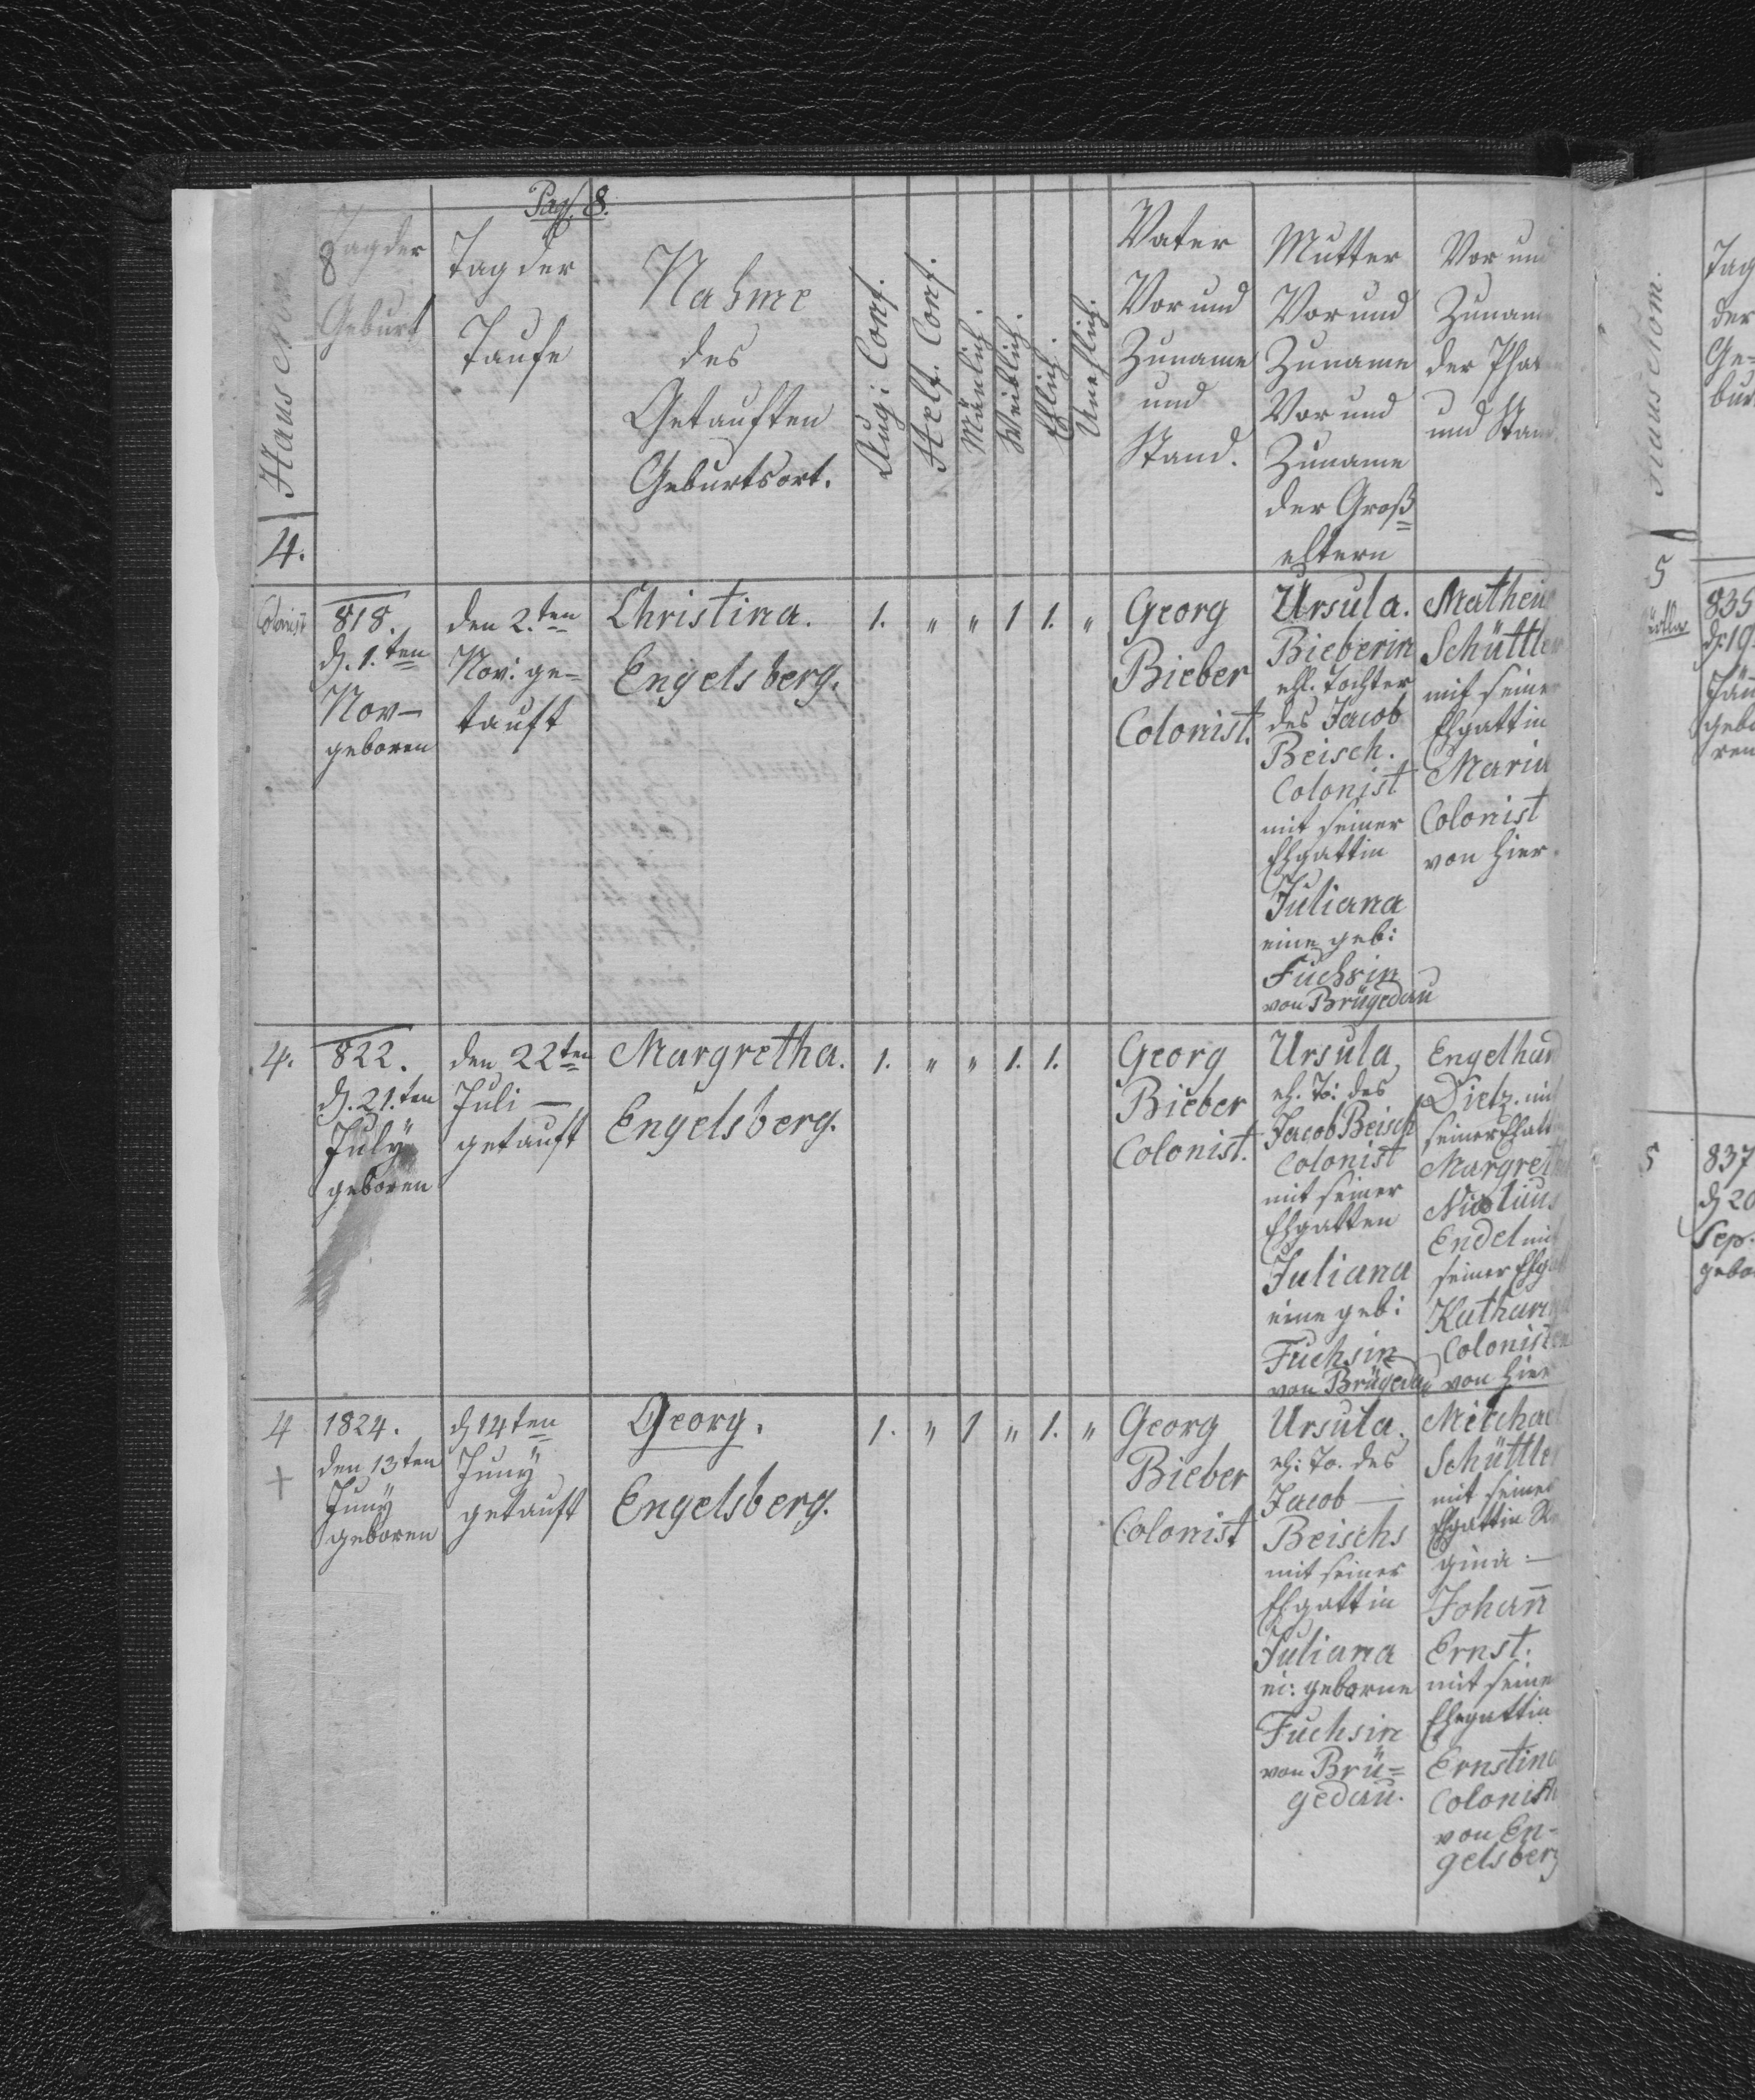 Pag. 8.
Haus Nom
4.
Tag der
Geburt
Tag der
Taufe
Nahme
des
Getauften
Geburtsort.
Aug: Conf.
Helv. Conf.
Mänlich.
Weiblich.
Ehlich.
Unehlich.
Vater
Vor und
Zuname
und
Stand.
Mutter
Vor und
Zuname
Vor und
Zuname
der Groß=
eltern
Vor und
Zuname
der
und Stand
Colonist
818.
d. 1.ten
Nov–
geboren
den 2.ten
Nov: ge-
tauft
Christina.
Engelsberg.
1. " " 1 1. "
Georg
Bieber
Colonist.
Ursula.
Bieberin
ehl. Tochter
des Jacob
Beisch.
Colonist
mit seiner
Ehgattin
Juliana
eine geb:
Fuchsin
von Brügedau
Matheus
Schüttler
mit seiner
Ehgattin
Maria
Colonist
von hier.
4.
822.
d. 21.ten
Julÿ
geboren
den 22ten
Juli —
getauft
Margretha.
Engelsberg.
1. " " 1. 1.
Georg
Bieber
Colonist.
Ursula
eh. To: des
Jacob Beisch
Colonist
mit seiner
Ehgatten
Juliana
eine geb:
Fuchsin
von Brügedau
Engelhard
Dietz. mit
seiner
Margreth
Endel mit
seiner
Katharina
Colonisten
von hier
4
+
1824.
den 13ten
Junÿ
geboren
d 14ten
Junÿ
getauft
Georg.
Engelsberg.
1. " 1 " 1. "
Georg
Bieber
Colonist
Ursula.
eh: To. des
Jacob —
Beischs
mit seiner
Ehgattin
Juliana
ei: geborne
Fuchsin
von Brü=
gedau.
Michael
Schüttler
mit seiner
Ehgattin Re
gina —
Johan̄
Ernst.
mit seine
Ehegattin
Ernstina
Colonist
von En-
gelsberg
Haus Nom.
5
Tag
der
Ge=
bur
835
d. 19
Jän
gebo
ren
5
837
d 20
Sep.
gebo